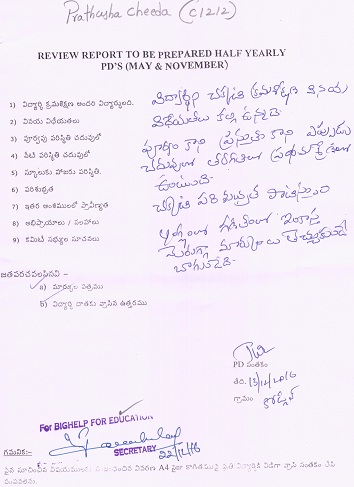 Prathusha Cheeda (C1212)
REVIEW REPORT TO BE PREPARED HALF YEARLY
PD'S (MAY & NOVEMBER)
1) విద్యార్థి క్రమశిక్షణ అందరి విద్యార్థులది.
2) వినయ విధేయతలు
3) పూర్వపు పరిస్థితి చదువులో
4) నేటి పరిస్థితి చదువులో
5) స్కూలుకు హాజరు పరిస్థితి.
6) పరిశుభ్రత
7) ఇతర అంశములలో ప్రావీణ్యత
8) అభిప్రాయాలు / సలహాలు
9) కమిటీ సభ్యుల సూచనలు
విద్యార్థిని చక్కటి క్రమశిక్షణ వినయ
విధేయతలు కల్గి ఉన్నది.
పూర్వం కాని ప్రస్తుతం కాని ఎప్పుడు
చదువులో తరగతిలో ప్రథమ
ఉంటుంది.
చక్కటి పరిశుభ్రత పాటిస్తుంది
గణితంలో ఇంకాస్త
మెరుగ్గా మార్కులు తెచ్చుకుంటే
బాగుంటుంది.
జతపరచవలసినవి -
a) మార్కుల పత్రము
b) విద్యార్థి దాతకు వ్రాసిన ఉత్తరము
PD సంతకం
తేది. 13/12/2016
గ్రామం
For BIGHELP FOR EDUCATION
SECRETARY 22/12/16
గమనిక:-
పైన సూచించిన విషయములకు సంబంధించిన వివరణ A4 సైజు కాగితముపై ప్రతి విద్యార్థికి విడిగా వ్రాసి సంతకం చేసి
పంపవలెను.